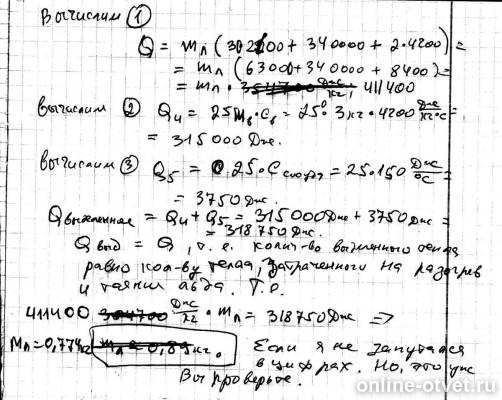 Вычислим ①
Q = mл (30·2100 + 340000 + 2·4200) =
= mл (63000 + 340000 + 8400) =
= mл · 411400 Дж/кг
Вычислим ② Q4 = 25 mв·Cв = 25°·3кг·4200 Дж/кг°C =
= 315000 Дж.
Вычислим ③ Q5 = 25·C = 25·150 Дж/°C
= 3750 Дж.
Qвыделенное = Q4 + Q5 = 315000 Дж + 3750 Дж =
= 318750 Дж.
Qвыд = Q, т.е. колич-во тепла
равно кол-ву тепла, затраченного на разогрев
и таяние льда. Т.о.
411400 Дж/кг · mл = 318750 Дж =>
mл = 0,774 кг mл = 0,89 кг. Если я не запутался
в цифрах. Но, это уж
Вы проверьте.
online-otvet.ru